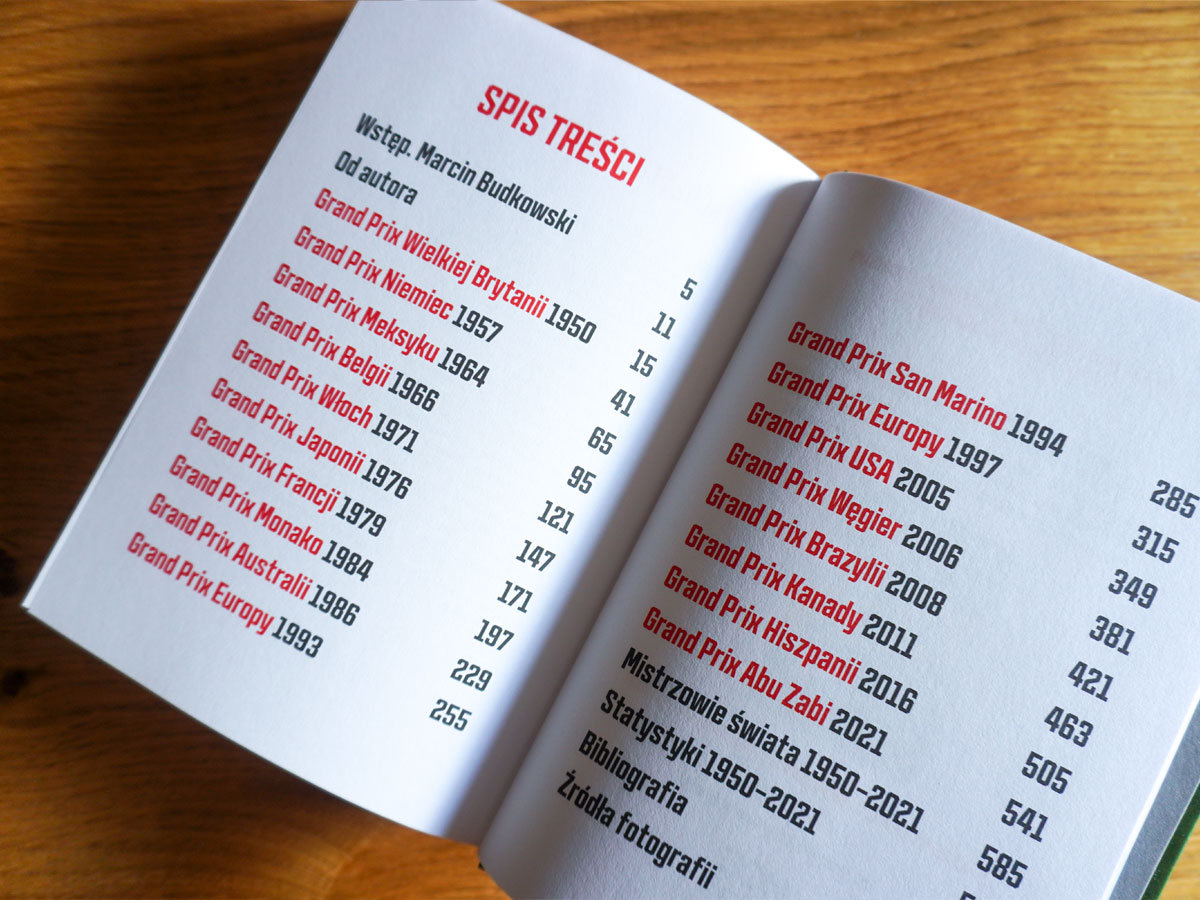 SPIS TREŚCI
Wstęp. Marcin Budkowski 5
Od autora 11
Grand Prix Wielkiej Brytanii 1950 15
Grand Prix Niemiec 1957 41
Grand Prix Meksyku 1964 65
Grand Prix Belgii 1966 95
Grand Prix Włoch 1971 121
Grand Prix Japonii 1976 147
Grand Prix Francji 1979 171
Grand Prix Monako 1984 197
Grand Prix Australii 1986 229
Grand Prix Europy 1993 255
Grand Prix San Marino 1994 285
Grand Prix Europy 1997 315
Grand Prix USA 2005 349
Grand Prix Węgier 2006 381
Grand Prix Brazylii 2008 421
Grand Prix Kanady 2011 463
Grand Prix Hiszpanii 2016 505
Grand Prix Abu Zabi 2021 541
Mistrzowie świata 1950–2021 585
Statystyki 1950–2021
Bibliografia
Źródła fotografii